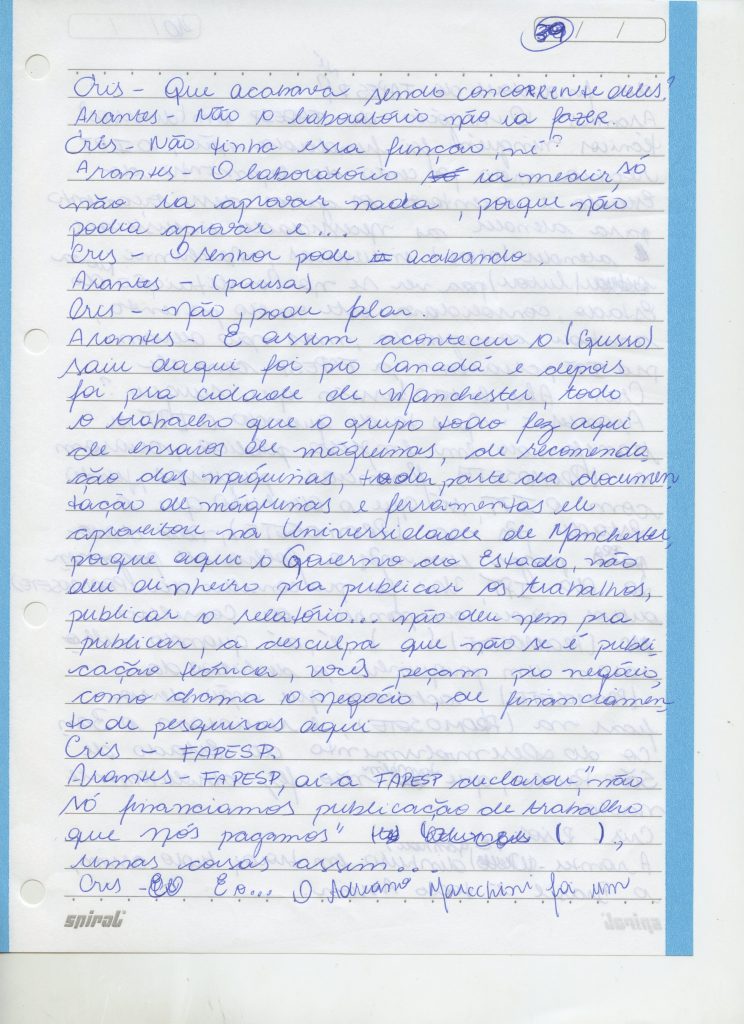 39 / /
Cris - Que acabava sendo concorrente deles?
Arantes - Não o laboratório não ia fazer.
Cris - Não tinha essa função, né?
Arantes - O laboratório ia medir, só
não ia aprovar nada, porque não
podia aprovar e....
Cris - O senhor pode acabando.
Arantes - (pausa)
Cris - Não, pode falar.
Arantes - E assim aconteceu o (Gusso)
saiu daqui foi pro Canadá e depois
foi pra cidade de Manchester todo
o trabalho que o grupo todo fez aqui
de ensaios de máquinas, de recomenda
ção das máquinas, toda parte da documen
tação de máquinas e ferramentas ele
aproveitou na Universidade de Manchester,
porque aqui o Governo do Estado, não
deu dinheiro pra publicar os trabalhos,
publicar o relatório... não deu nem pra
publicar, a desculpa que não se é publi
cação teórica, vocês peçam pro negócio,
como chama o negócio, de financiamen
to de pesquisas aqui
Cris - FAPESP.
Arantes - FAPESP, aí a FAPESP declarou, "não
só financiamos publicação de trabalho
que nós pagamos" ( ),
umas coisas assim...
Cris - E o... O Adriano Marcchini foi um
spiral